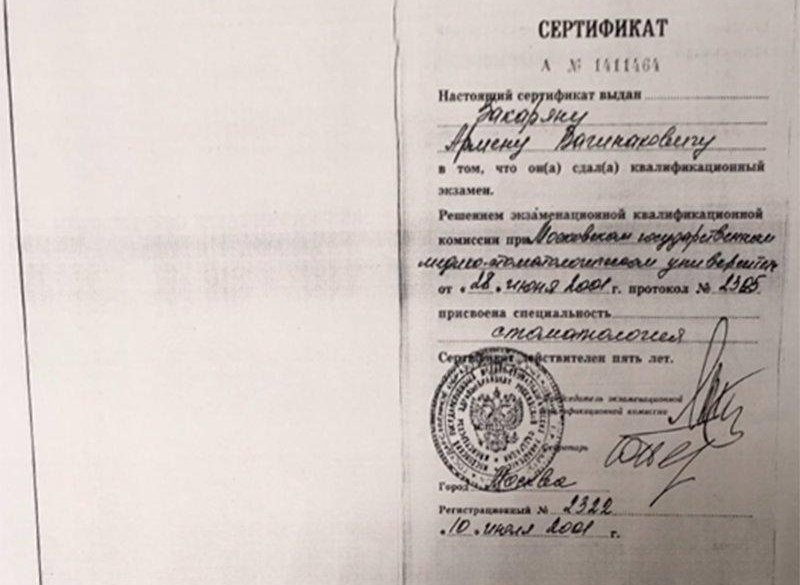 СЕРТИФИКАТ
А № 1411464
Настоящий сертификат выдан
Закаряну
Армену Вагинаковичу
в том, что он(а) сдал(а) квалификационный
экзамен.
Решением экзаменационной квалификационной
комиссии при Московском государственном
медико-стоматологическом университете
от « 28 » июня 2001 г. протокол № 2305
присвоена специальность
стоматология
Сертификат действителен пять лет.
Председатель экзаменационной
квалификационной комиссии
Секретарь
Город Москва
Регистрационный № 2322
« 10 » июля 2001 г.